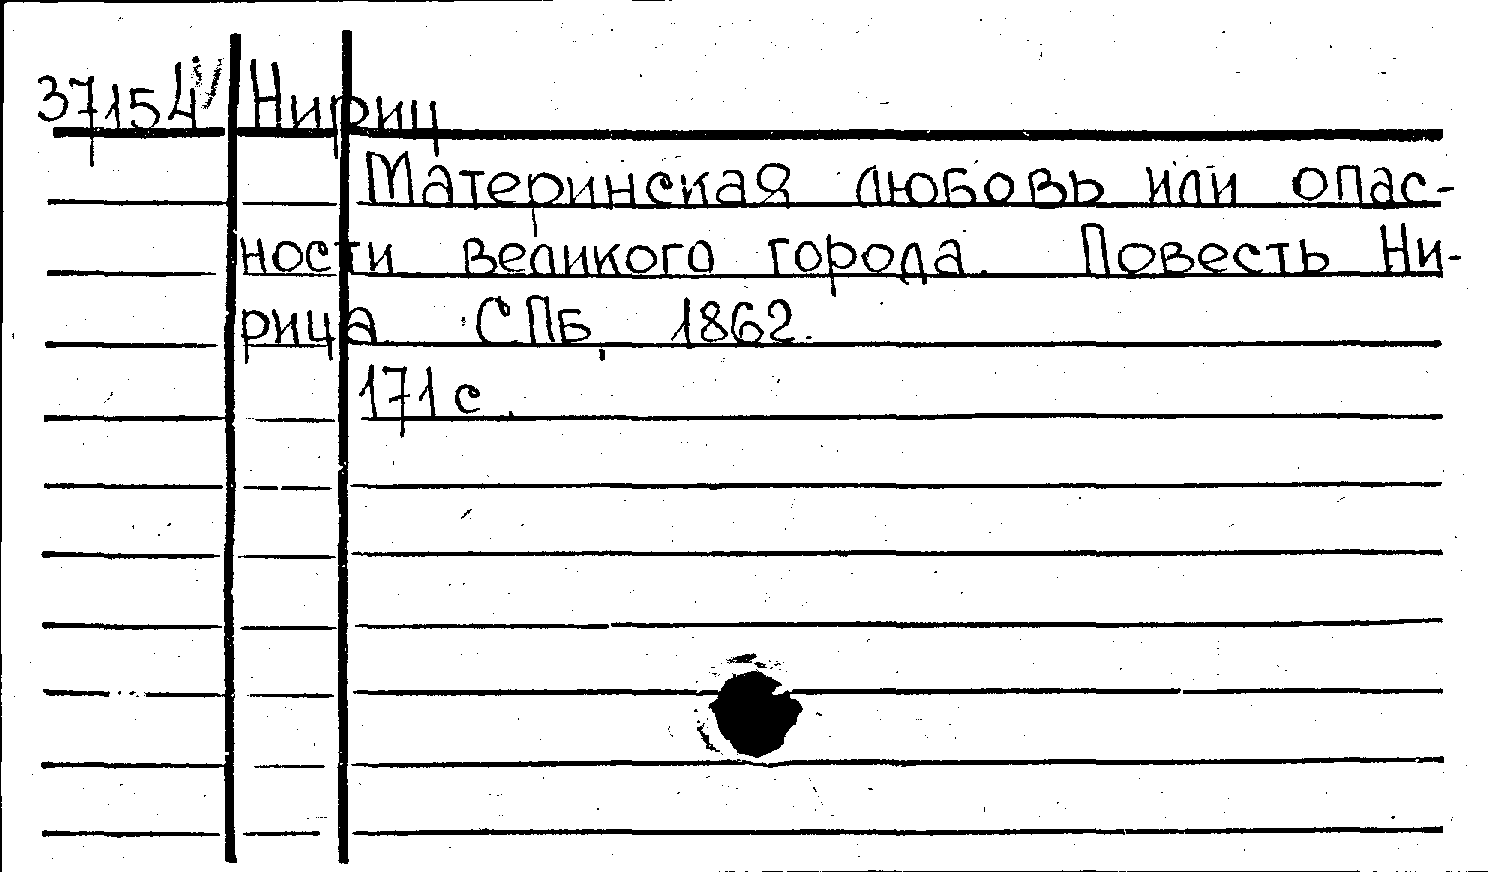 37154 Нириц
Материнская любовь или опас-
ности великого города. Повесть Ни-
рица. СПБ, 1862.
171 с.